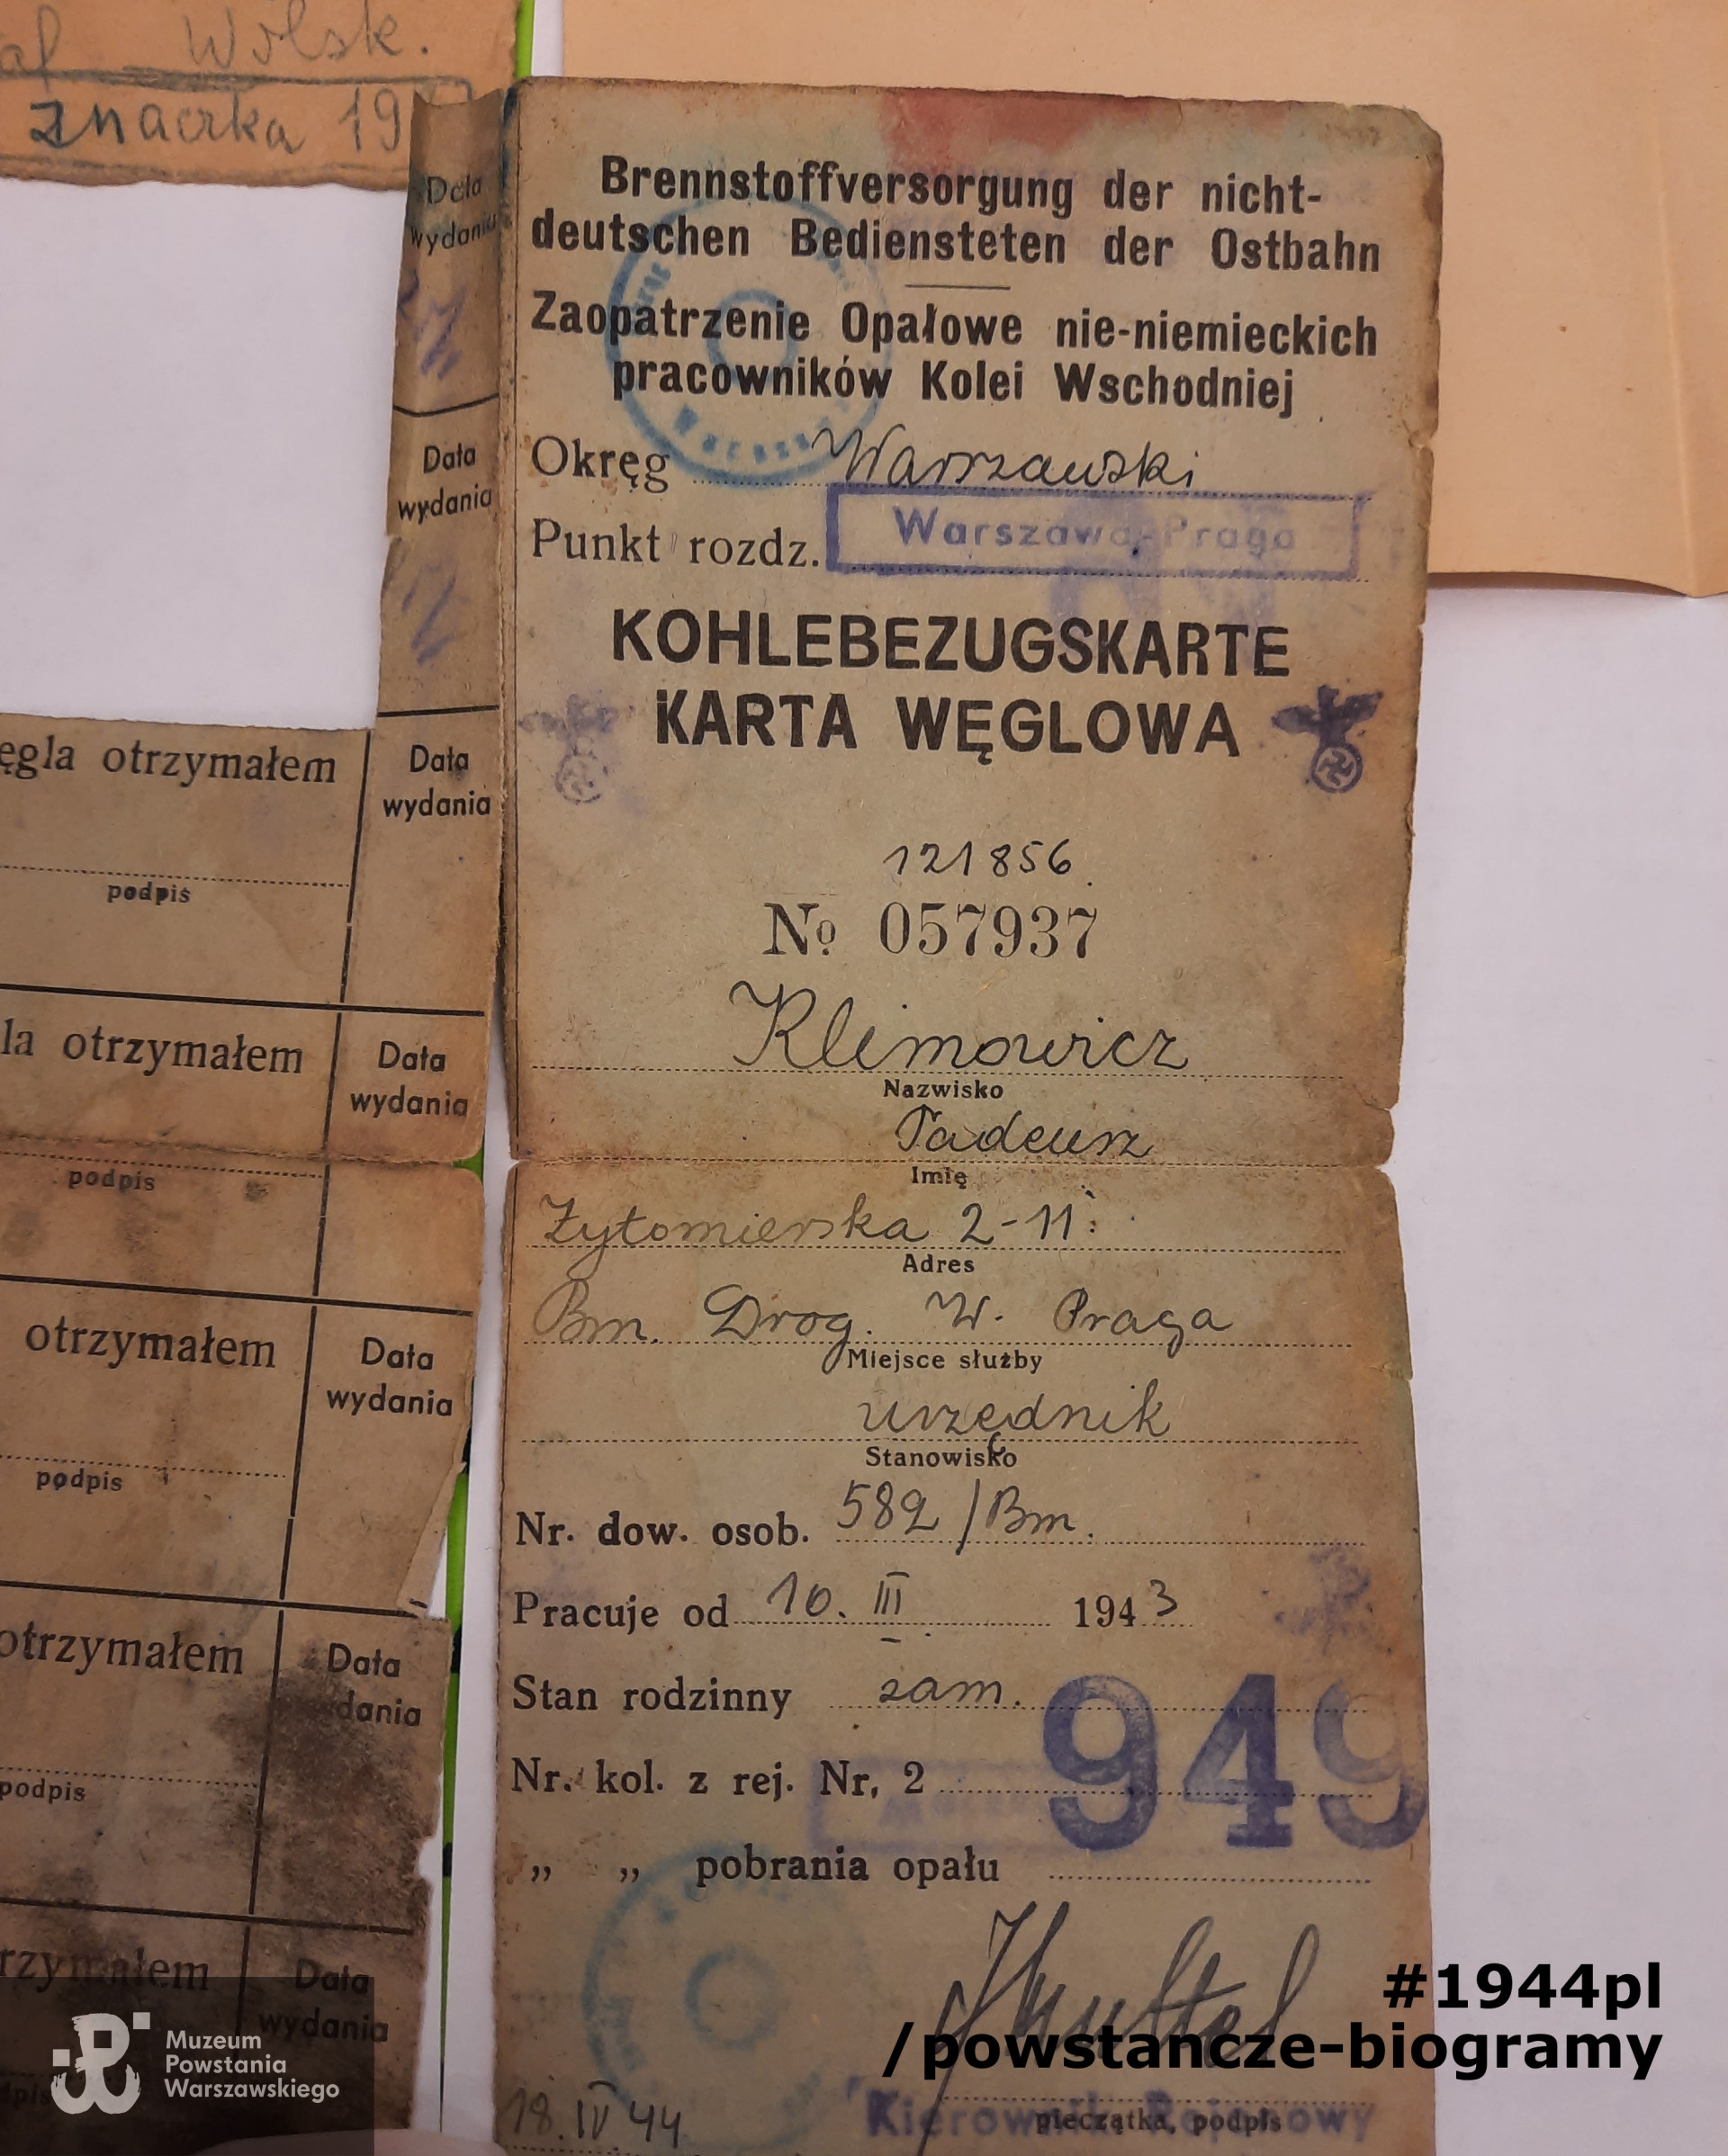 Wolsk.
znaczka 19
Data
wydania
Data
wydania
ęgla otrzymałem
Data
wydania
podpis
la otrzymałem
Data
wydania
podpis
otrzymałem
Data
wydania
podpis
otrzymałem
Data
dania
podpis
rzymałem
Data
wydania
Brennstoffversorgung der nicht-
deutschen Bediensteten der Ostbahn
Zaopatrzenie Opałowe nie-niemieckich
pracowników Kolei Wschodniej
Okręg Warszawski
Punkt rozdz. Warszawa-Praga
KOHLEBEZUGSKARTE
KARTA WĘGLOWA
121856
No 057937
Klimowicz
Nazwisko
Tadeusz
Imię
Żytomierska 2-11
Adres
Bm. Drog. W. Praga
Miejsce służby
urzędnik
Stanowisko
Nr. dow. osob. 582/Bm.
Pracuje od 10. III 1943
Stan rodzinny sam.
Nr. kol. z rej. Nr. 2 949
„ „ pobrania opału
Kierownik Rejonowy
pieczątka, podpis
18.IV 44
#1944pl
/powstancze-biogramy
Muzeum
Powstania
Warszawskiego